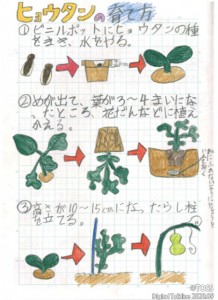 ヒョウタンの育て方
①ビニルポットにヒョウタンの種
をまき、水をやる。
②めが出て、葉が3~4まいにな
ったところ、花だんなどに植え
かえる。
③高さが10~15cmになったらし柱
を立てる。
©TOSS
Digital Tokiwa 2020.05